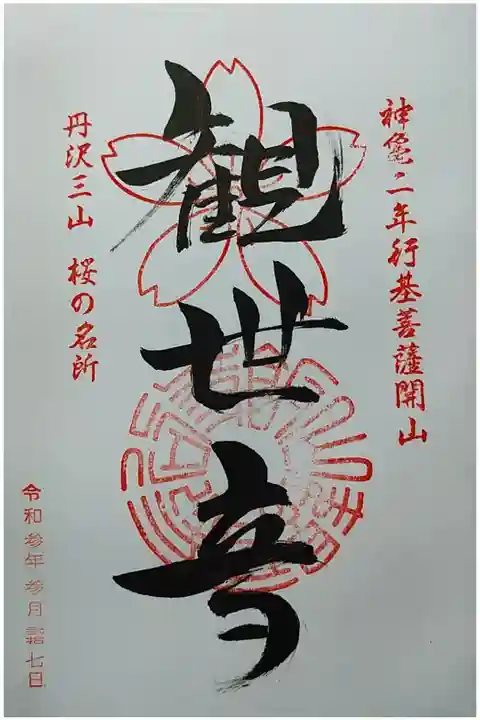 神亀二年行基菩薩開山
観世音
丹沢三山 桜の名所
令和参年 参月 弐拾七日